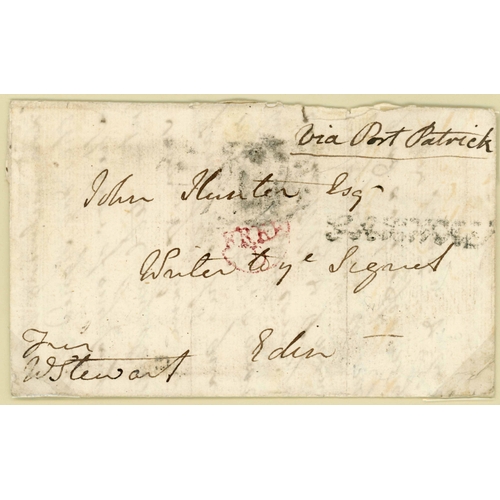 Via Port Patrick
John Hunter Esqr
FREE
Writer to ye Signet
Edinr
Free
WStewart